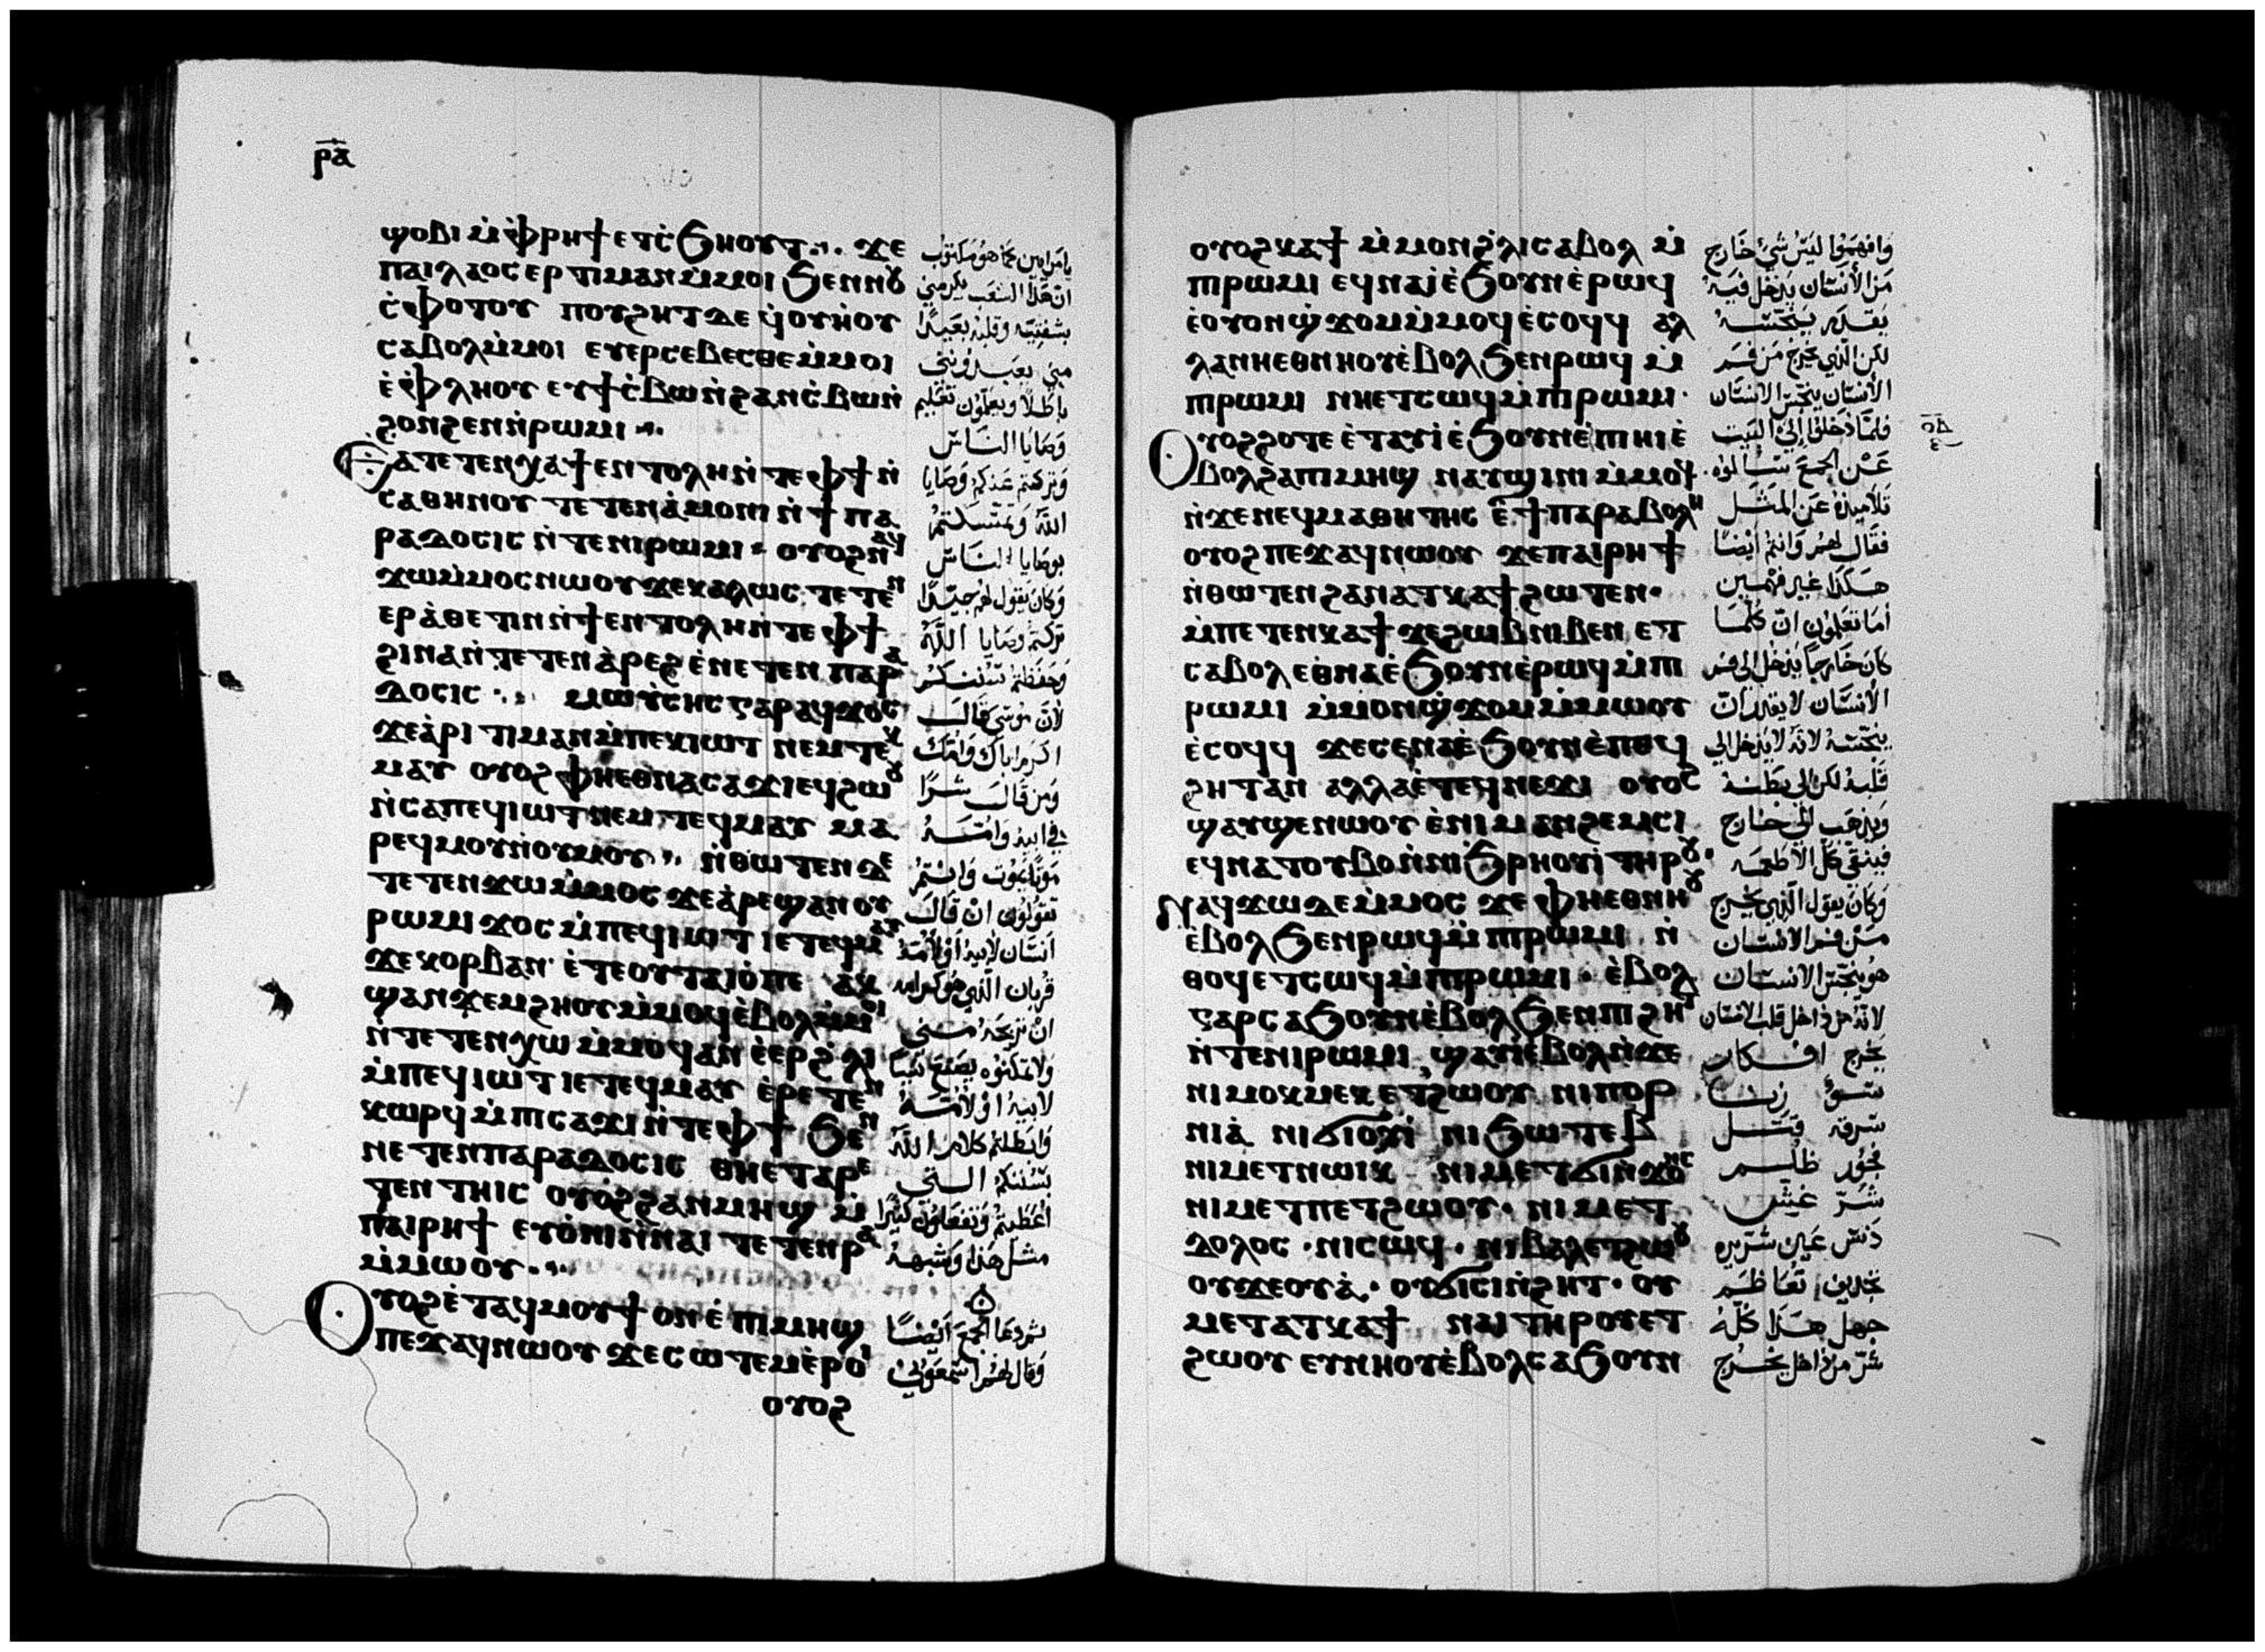 ⲣⲁ
ϣⲟⲃⲓ ⲙ̀ⲫⲣⲏϯ ⲉⲧⲥ̀ϧⲏⲟⲩⲧ ϫⲉ
ⲡⲁⲓⲗⲁⲟⲥ ⲉⲣⲧⲓⲙⲁⲛ ⲙ̀ⲙⲟⲓ ϧⲉⲛ ⲛⲟⲩ
ⲥ̀ⲫⲟⲧⲟⲩ ⲡⲟⲩϩⲏⲧ ⲇⲉ ϥ̀ⲟⲩⲏⲟⲩ
ⲥⲁⲃⲟⲗ ⲙ̀ⲙⲟⲓ ⲉⲩⲉⲣⲥⲉⲃⲉⲥⲑⲉ ⲙ̀ⲙⲟⲓ
ⲉ̀ⲫⲗⲏⲟⲩ ⲉⲩϯⲥ̀ⲃⲱ ⲛ̀ϩⲁⲛⲥ̀ⲃⲱ ⲛ̀
ϩⲟⲛϩⲉⲛ ⲛ̀ⲣⲱⲙⲓ
ⲉⲁⲧⲉⲧⲉⲛⲭⲁ ϯⲉⲛⲧⲟⲗⲏ ⲛ̀ⲧⲉ ⲫϯ ⲛ̀
ⲥⲁⲑⲏⲛⲟⲩ ⲧⲉⲧⲉⲛⲁ̀ⲙⲟⲛⲓ ⲛ̀ϯⲡⲁ
ⲣⲁⲇⲟⲥⲓⲥ ⲛ̀ⲧⲉ ⲛⲓⲣⲱⲙⲓ ⲟⲩⲟϩ ⲛⲁϥ
ϫⲱ ⲙ̀ⲙⲟⲥ ⲛⲱⲟⲩ ϫⲉ ⲕⲁⲗⲱⲥ ⲧⲉⲧⲉⲛ
ⲉⲣⲁ̀ⲑⲉⲧⲓⲛ ⲛ̀ϯⲉⲛⲧⲟⲗⲏ ⲛ̀ⲧⲉ ⲫϯ
ϩⲓⲛⲁ ⲛ̀ⲧⲉⲧⲉⲛⲁ̀ⲣⲉϩ ⲉ̀ⲛⲉⲧⲉⲛⲡⲁⲣⲁ
ⲇⲟⲥⲓⲥ ⲙⲱⲩ̀ⲥⲏⲥ ⲅⲁⲣ ⲁϥϫⲟⲥ
ϫⲉ ⲁ̀ⲣⲓⲧⲓⲙⲁⲛ ⲙ̀ⲡⲉⲕⲓⲱⲧ ⲛⲉⲙ ⲧⲉⲕ
ⲙⲁⲩ ⲟⲩⲟϩ ⲫⲏⲉⲑⲛⲁⲥⲁϫⲓ ⲉϥϩⲱⲟⲩ
ⲛ̀ⲥⲁ ⲡⲉϥⲓⲱⲧ ⲛⲉⲙ ⲧⲉϥⲙⲁⲩ ⲙⲁ
ⲣⲉϥⲙⲟⲩ ⲛ̀ⲟⲩⲙⲟⲩ ⲛ̀ⲑⲱⲧⲉⲛ ⲇⲉ
ⲧⲉⲧⲉⲛϫⲱ ⲙ̀ⲙⲟⲥ ϫⲉ ⲁ̀ⲣⲉϣⲁⲛ ⲟⲩ
ⲣⲱⲙⲓ ϫⲟⲥ ⲙ̀ⲡⲉϥⲓⲱⲧ ⲓⲉ ⲧⲉϥⲙⲁⲩ
ϫⲉ ⲕⲟⲣⲃⲁⲛ ⲉ̀ⲧⲉ ⲟⲩⲧⲁⲓⲟ̀ ⲡⲉ ⲁⲕ
ϣⲁⲛϫⲉⲙϩⲏⲟⲩ ⲙ̀ⲙⲟϥ ⲉ̀ⲃⲟⲗ ⲙ̀ⲙⲟⲓ
ⲛ̀ⲧⲉⲧⲉⲛⲭⲱ ⲙ̀ⲙⲟϥ ⲁⲛ ⲉ̀ⲉⲣϩ̀ⲗⲓ
ⲙ̀ⲡⲉϥⲓⲱⲧ ⲓⲉ ⲧⲉϥⲙⲁⲩ ⲉ̀ⲣⲉⲧⲉⲛ
ⲕⲱⲣϥ ⲙ̀ⲡⲥⲁϫⲓ ⲛ̀ⲧⲉ ⲫϯ ϧⲉⲛ
ⲛⲉⲧⲉⲛⲡⲁⲣⲁⲇⲟⲥⲓⲥ ⲑⲏⲉⲧⲁⲣⲉ
ⲧⲉⲛⲧⲏⲓⲥ ⲟⲩⲟϩ ϩⲁⲛⲙⲏϣ ⲙ̀
ⲡⲁⲓⲣⲏϯ ⲉⲩⲟ̀ⲛⲓ ⲛ̀ⲛⲁⲓ ⲧⲉⲧⲉⲛⲣⲁ
ⲙ̀ⲙⲱⲟⲩ
ⲟⲩⲟϩ ⲉ̀ⲧⲁϥⲙⲟⲩϯ ⲟⲛ ⲉ̀ⲡⲓⲙⲏϣ
ⲡⲉϫⲁϥ ⲛⲱⲟⲩ ϫⲉ ⲥⲱⲧⲉⲙ ⲉ̀ⲣⲟⲓ
ⲟⲩⲟϩ
يا مرايين كما هو مكتوب
ان هذا الشعب يكرمني
بشفتيه وقلبه بعيدًا
مني يعبدونني
باطلًا ويعلمون تعليم
وصايا الناس
وتركتم عنكم وصايا
الله وتمسكتم
بوصايا الناس
وكان يقول لهم جيّدًا
تركتم وصايا الله
وحفظتم سننكم
لأن موسى قال
اكرم اباك وامك
ومن قال شرًا
في ابيه وامه
موتًا يموت وانتم
تقولون ان قال
انسان لابيه او لأمه
قربان الذي هو كرامه
ان تربحه مني
ولا تمكنوه يصنع شيئًا
لابيه او لأمه
وابطلتم كلام الله
بسننكم التي
اعطيتم وتفعلون كثيرًا
مثل هذا وشبهه
ثم دعا الجمع ايضًا
وقال لهم اسمعوني
ⲟⲩⲟϩ ⲕⲁϯ ⲙ̀ⲙⲟⲛ ϩ̀ⲗⲓ ⲥⲁⲃⲟⲗ ⲙ̀
ⲡⲓⲣⲱⲙⲓ ⲉϥⲛⲁⲓ̀ ⲉ̀ϧⲟⲩⲛ ⲉ̀ⲣⲱϥ
ⲉ̀ⲟⲩⲟⲛ ϣ̀ϫⲟⲙ ⲙ̀ⲙⲟϥ ⲉ̀ⲥⲟϥϥ ⲁⲗ
ⲗⲁ ⲛⲏⲉⲑⲛⲏⲟⲩ ⲉ̀ⲃⲟⲗ ϧⲉⲛ ⲣⲱϥ ⲙ̀
ⲡⲓⲣⲱⲙⲓ ⲛⲏⲉⲧⲥⲱϥ ⲙ̀ⲡⲓⲣⲱⲙⲓ
ⲟⲩⲟϩ ϩⲟⲧⲉ ⲉ̀ⲧⲁⲩⲓ̀ ⲉ̀ϧⲟⲩⲛ ⲉ̀ⲡⲓⲏⲓ ⲉ̀
ⲃⲟⲗ ϩⲁ ⲡⲓⲙⲏϣ ⲛⲁⲩϣⲓⲛⲓ ⲙ̀ⲙⲟϥ
ⲛ̀ϫⲉ ⲛⲉϥⲙⲁⲑⲏⲧⲏⲥ ⲉ̀ϯⲡⲁⲣⲁⲃⲟⲗⲏ
ⲟⲩⲟϩ ⲡⲉϫⲁϥ ⲛⲱⲟⲩ ϫⲉ ⲡⲁⲓⲣⲏϯ
ⲛ̀ⲑⲱⲧⲉⲛ ϩⲁⲛⲁⲧⲕⲁϯ ϩⲱⲧⲉⲛ
ⲙ̀ⲡⲉⲧⲉⲛⲕⲁϯ ϫⲉ ϩⲱⲃ ⲛⲓⲃⲉⲛ ⲉⲧ
ⲥⲁⲃⲟⲗ ⲉⲑⲛⲁ ⲉ̀ϧⲟⲩⲛ ⲉ̀ⲣⲱϥ ⲙ̀ⲡⲓ
ⲣⲱⲙⲓ ⲙ̀ⲙⲟⲛ ϣ̀ϫⲟⲙ ⲙ̀ⲙⲱⲟⲩ
ⲉ̀ⲥⲟϥϥ ϫⲉ ⲥⲉⲛⲁ ⲉ̀ϧⲟⲩⲛ ⲉ̀ⲡⲉϥ
ϩⲏⲧ ⲁⲛ ⲁⲗⲗⲁ ⲉ̀ⲧⲉϥⲛⲉϫⲓ ⲟⲩⲟϩ
ϣⲁⲩϣⲉⲛⲱⲟⲩ ⲉ̀ⲛⲓⲙⲁⲛϩⲉⲙⲥⲓ
ⲉϥⲛⲁⲧⲟⲩⲃⲟ ⲛ̀ⲛⲓϧⲣⲏⲟⲩⲓ̀ ⲧⲏⲣⲟⲩ
ⲛⲁϥϫⲱ ⲇⲉ ⲙ̀ⲙⲟⲥ ϫⲉ ⲫⲏⲉⲑⲛⲏⲟⲩ
ⲉ̀ⲃⲟⲗ ϧⲉⲛ ⲣⲱϥ ⲙ̀ⲡⲓⲣⲱⲙⲓ ⲛ̀
ⲑⲟϥ ⲉⲧⲥⲱϥ ⲙ̀ⲡⲓⲣⲱⲙⲓ ⲉ̀ⲃⲟⲗ
ⲅⲁⲣ ⲥⲁϧⲟⲩⲛ ⲉ̀ⲃⲟⲗ ϧⲉⲛ ⲡⲓϩⲏⲧ
ⲛ̀ⲧⲉ ⲛⲓⲣⲱⲙⲓ ϣⲁⲩⲓ̀ ⲉ̀ⲃⲟⲗ ⲛ̀ϫⲉ
ⲛⲓⲙⲟⲕⲙⲉⲕ ⲉⲧϩⲱⲟⲩ ⲛⲓⲡⲟⲣ
ⲛⲓⲁ̀ ⲛⲓϭⲓⲟⲩⲓ̀ ⲛⲓϧⲱⲧⲉⲃ
ⲛⲓⲙⲉⲧⲛⲱⲓⲕ ⲛⲓⲙⲉⲧϭⲓⲛϫⲟⲛⲥ
ⲛⲓⲙⲉⲧⲡⲉⲧϩⲱⲟⲩ ⲛⲓⲙⲉⲧ
ⲇⲟⲗⲟⲥ ⲛⲓⲥⲱϥ ⲛⲓⲃⲁⲗ ⲉⲧϩⲱⲟⲩ
ⲟⲩϫⲉⲟⲩⲁ̀ ⲟⲩϭⲓⲥⲓ ⲛ̀ϩⲏⲧ ⲟⲩ
ⲙⲉⲧⲁⲧⲕⲁϯ ⲛⲁⲓ ⲧⲏⲣⲟⲩ ⲉⲧ
ϩⲱⲟⲩ ⲉⲩⲛⲏⲟⲩ ⲉ̀ⲃⲟⲗ ⲥⲁϧⲟⲩⲛ
وافهموا ليس شيء خارج
من الأنسان يدخل فيه
يقدر ينجسه
لكن الذي يخرج من فم
الأنسان ينجس الانسان
فلما دخلوا إلى البيت
عن الجمع سألوه
تلاميذه عن المثل
فقال لهم وانتم ايضًا
هكذا غير فهمين
أما تعلمون ان كلما
كان خارجًا يدخل الى فم
الأنسان لا يقدر ان
ينجسه لانه لا يدخل الي
قلبه لكن الى بطنه
ويذهب الي خارج
فينقي كل الأطعمه
وكان يقول الذي يخرج
من فم الانسان
هو ينجس الانسان
لانه من داخل قلب الانسان
يخرج افكار
سوء زنا
سرقه قتل
فجور ظلم
شر غش
دنس عين شريره
تجديف تعاظم
جهل هذا كله
شر من داخل يخرج
ⲟⲇ